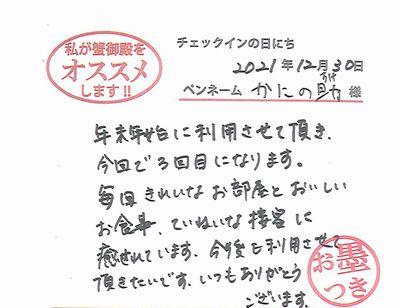 私が蟹御殿を
オススメ
します!!
チェックインの日にち
2021年12月30日
ペンネーム かにの助 様
すけ
年末年始に利用させて頂き、
今回で3回目になります。
毎回きれいなお部屋とおいしい
お食事、ていねいな接客に
癒されています。今後も利用させて
頂きたいです。いつもありがとう
ございます。
お墨
つき